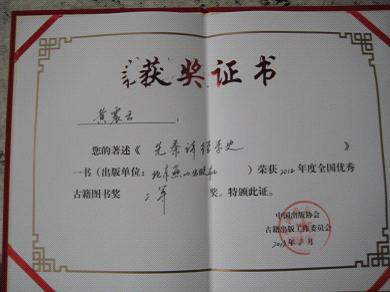 获奖证书
黄震云
您的著述《先秦诗经学史》
一书(出版单位:北京燕山出版社)荣获2012年度全国优秀
古籍图书奖 二等 奖。特颁此证。
中国出版协会
古籍出版工作委员会
2013年 月